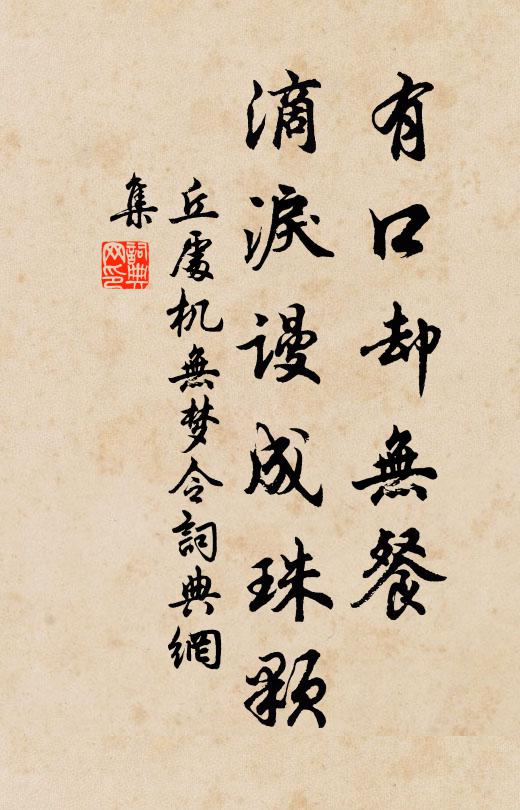 有口却無餐
滴淚谩成珠顆
丘處机無梦令詞典網
集
詞典
网印